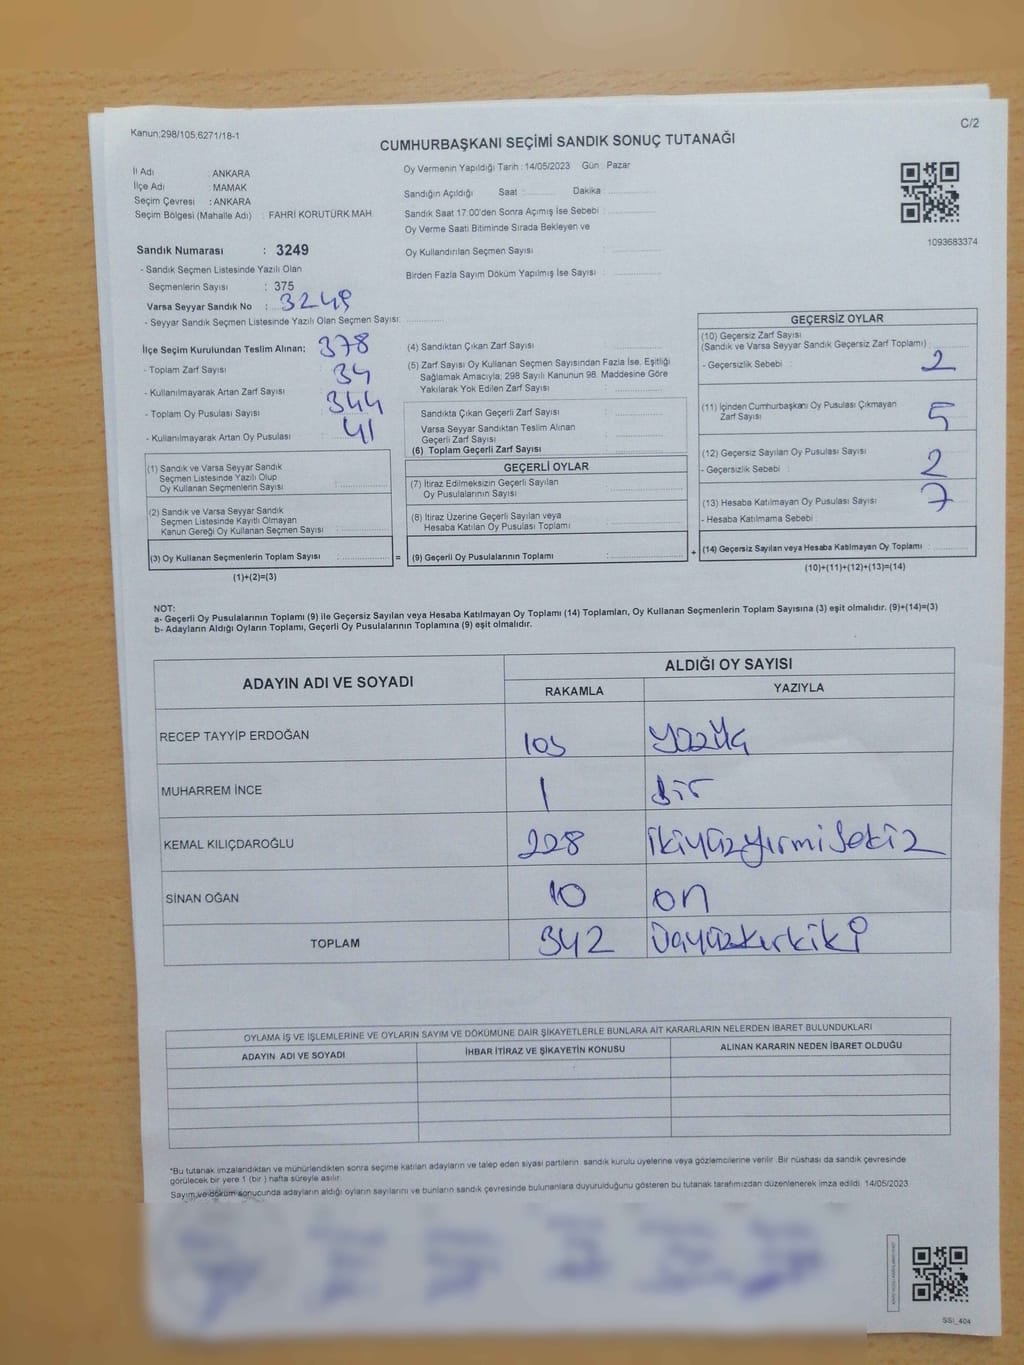 Kanun;298/105,6271/18-1
C/2
CUMHURBAŞKANI SEÇİMİ SANDIK SONUÇ TUTANAĞI
İl Adı : ANKARA
İlçe Adı MAMAK
Seçim Çevresi : ANKARA
Seçim Bölgesi (Mahalle Adı) : FAHRİ KORUTÜRK MAH.
Oy Vermenin Yapıldığı Tarih : 14/05/2023 Gün : Pazar
Sandığın Açıldığı Saat : Dakika :
Sandık Saat 17:00'den Sonra Açılmış İse Sebebi :
Oy Verme Saati Bitiminde Sırada Bekleyen ve
Oy Kullandırılan Seçmen Sayısı :
Birden Fazla Sayım Döküm Yapılmış İse Sayısı :
1093683374
Sandık Numarası : 3249
- Sandık Seçmen Listesinde Yazılı Olan
Seçmenlerin Sayısı : 375
Varsa Seyyar Sandık No : 3249
- Seyyar Sandık Seçmen Listesinde Yazılı Olan Seçmen Sayısı:
İlçe Seçim Kurulundan Teslim Alınan; 378
- Toplam Zarf Sayısı : 34
- Kullanılmayarak Artan Zarf Sayısı : 344
- Toplam Oy Pusulası Sayısı : 41
- Kullanılmayarak Artan Oy Pusulası :
(1) Sandık ve Varsa Seyyar Sandık
Seçmen Listesinde Yazılı Olup
Oy Kullanan Seçmenlerin Sayısı :
(2) Sandık ve Varsa Seyyar Sandık
Seçmen Listesinde Kayıtlı Olmayan
Kanun Gereği Oy Kullanan Seçmen Sayısı :
(3) Oy Kullanan Seçmenlerin Toplam Sayısı : =
(1)+(2)=(3)
(4) Sandıktan Çıkan Zarf Sayısı :
(5) Zarf Sayısı Oy Kullanan Seçmen Sayısından Fazla İse, Eşitliği
Sağlamak Amacıyla; 298 Sayılı Kanunun 98. Maddesine Göre
Yakılarak Yok Edilen Zarf Sayısı :
Sandıkta Çıkan Geçerli Zarf Sayısı :
Varsa Seyyar Sandıktan Teslim Alınan
Geçerli Zarf Sayısı :
(6) Toplam Geçerli Zarf Sayısı :
GEÇERLİ OYLAR
(7) İtiraz Edilmeksizin Geçerli Sayılan
Oy Pusulalarının Sayısı :
(8) İtiraz Üzerine Geçerli Sayılan veya
Hesaba Katılan Oy Pusulası Toplamı :
(9) Geçerli Oy Pusulalarının Toplamı : +
GEÇERSİZ OYLAR
(10) Geçersiz Zarf Sayısı
(Sandık ve Varsa Seyyar Sandık Geçersiz Zarf Toplamı) : 2
- Geçersizlik Sebebi :
(11) İçinden Cumhurbaşkanı Oy Pusulası Çıkmayan
Zarf Sayısı : 5
(12) Geçersiz Sayılan Oy Pusulası Sayısı : 2
- Geçersizlik Sebebi :
(13) Hesaba Katılmayan Oy Pusulası Sayısı : 7
- Hesaba Katılmama Sebebi :
(14) Geçersiz Sayılan veya Hesaba Katılmayan Oy Toplamı :
(10)+(11)+(12)+(13)=(14)
NOT:
a- Geçerli Oy Pusulalarının Toplamı (9) ile Geçersiz Sayılan veya Hesaba Katılmayan Oy Toplamı (14) Toplamları, Oy Kullanan Seçmenlerin Toplam Sayısına (3) eşit olmalıdır. (9)+(14)=(3)
b- Adayların Aldığı Oyların Toplamı, Geçerli Oy Pusulalarının Toplamına (9) eşit olmalıdır.
ADAYIN ADI VE SOYADI ALDIĞI OY SAYISI
RAKAMLA YAZIYLA
RECEP TAYYİP ERDOĞAN 103
MUHARREM İNCE 1 bir
KEMAL KILIÇDAROĞLU 228 ikiyüzyirmisekiz
SİNAN OĞAN 10 on
TOPLAM 342 üçyüzkırkiki
OYLAMA İŞ VE İŞLEMLERİNE VE OYLARIN SAYIM VE DÖKÜMÜNE DAİR ŞİKAYETLERLE BUNLARA AİT KARARLARIN NELERDEN İBARET BULUNDUKLARI
ADAYIN ADI VE SOYADI İHBAR İTİRAZ VE ŞİKAYETİN KONUSU ALINAN KARARIN NEDEN İBARET OLDUĞU
*Bu tutanak imzalandıktan ve mühürlendikten sonra seçime katılan adayların ve talep eden siyasi partilerin sandık kurulu üyelerine veya gözlemcilerine verilir. Bir nüshası da sandık çevresinde
görülecek bir yere 1 (bir) hafta süreyle asılır.
Sayım ve döküm sonucunda adayların aldığı oyların sayılarını ve bunların sandık çevresinde bulunanlara duyurulduğunu gösteren bu tutanak tarafımızdan düzenlenerek imza edildi. 14/05/2023
SSI_404